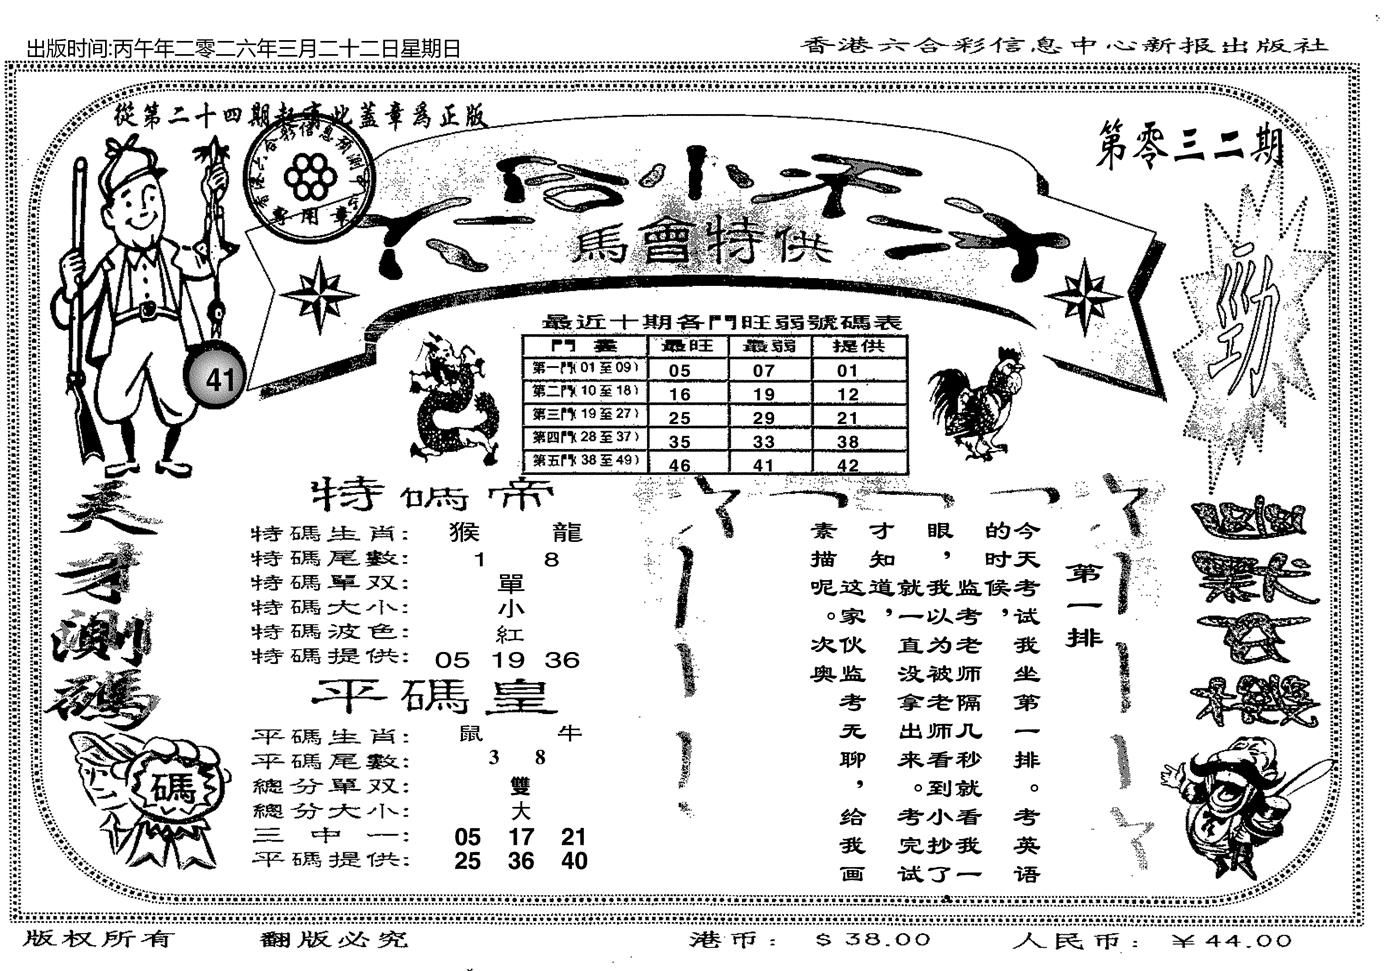 出版时间:丙午年二零二六年三月二十二日星期日
香港六合彩信息中心新报出版社
從第二十四期起有此蓋章爲正版
香港六合彩信息预测中心
專用章
第零三二期
六合小不二才
馬會特供
勁
41
最近十期各門旺弱號碼表
門 最旺 最弱 提供
第一門(01至09) 05 07 01
第二門(10至18) 16 19 12
第三門(19至27) 25 29 21
第四門(28至37) 35 33 38
第五門(38至49) 46 41 42
天才測碼
特碼帝
特碼生肖: 猴 龍
特碼尾數: 1 8
特碼單双: 單
特碼大小: 小
特碼波色: 紅
特碼提供: 05 19 36
平碼皇
平碼生肖: 鼠 牛
平碼尾數: 3 8
總分單双: 雙
總分大小: 大
三中一: 05 17 21
平碼提供: 25 36 40
碼
第一排
今天考试我坐第一排。考英语
的时候，监考老师隔几秒就看我一
眼，我以为被老师看到小抄了
就一直没拿出来。考完试
才知道，
这家伙监考无聊，给我画
素描呢。次奥
版权所有
翻版必究
港币: $38.00
人民币: ￥44.00